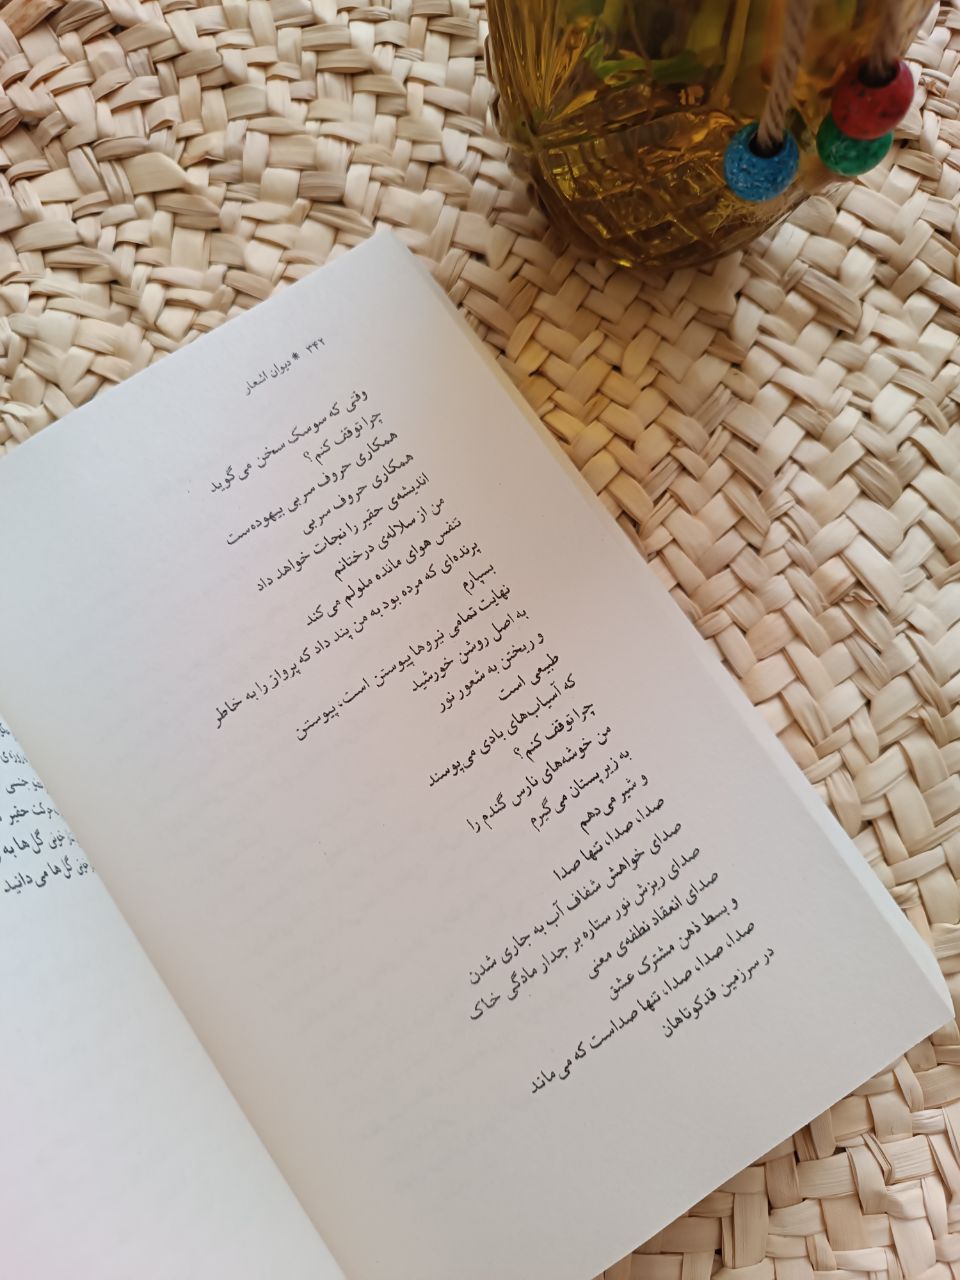 ۳۴۲ * دیوان اشعار
وقتی که سوسک سخن می‌گوید
چرا توقف کنم؟
همکاری حروف سربی بیهوده‌ست
همکاری حروف سربی
اندیشه‌ی حقیر را نجات خواهد داد
من از سلاله‌ی درختانم
تنفس هوای مانده ملولم می‌کند
پرنده‌ای که مرده بود به من پند داد که پرواز را به خاطر
بسپارم
نهایت تمامی نیروها پیوستن است، پیوستن
به اصل روشن خورشید
و ریختن به شعور نور
طبیعی است
که آسیاب‌های بادی می‌پوسند
چرا توقف کنم؟
من خوشه‌های نارس گندم را
به زیر پستان می‌گیرم
و شیر می‌دهم
صدا، صدا، تنها صدا
صدای خواهش شفاف آب به جاری شدن
صدای ریزش نور ستاره بر جدار مادگی خاک
صدای انعقاد نطفه‌ی معنی
و بسط ذهن مشترک عشق
صدا، صدا، صدا، تنها صداست که می‌ماند
در سرزمین قدکوتاهان
حقیر
گل‌ها به
گل‌ها می‌دانید